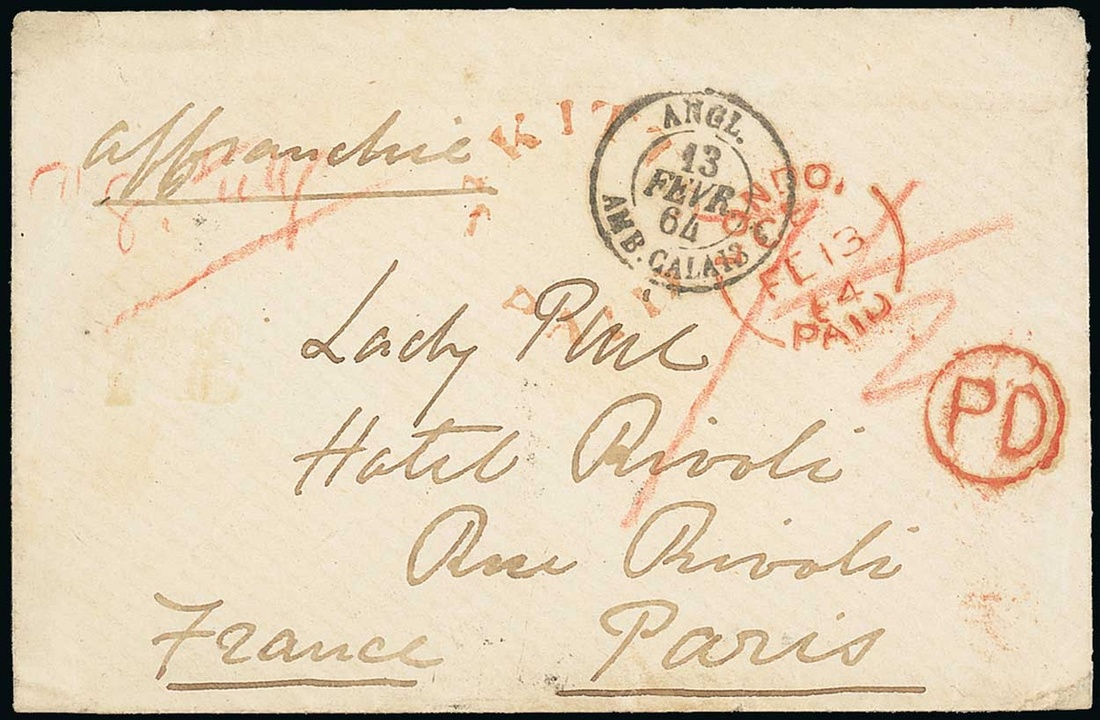 affranchie
ANGL.
13
FEVR
64
AMB. CALAIS
FE 13
64
PAID
PD
Lady
Hotel Rivoli
Rue Rivoli
France Paris